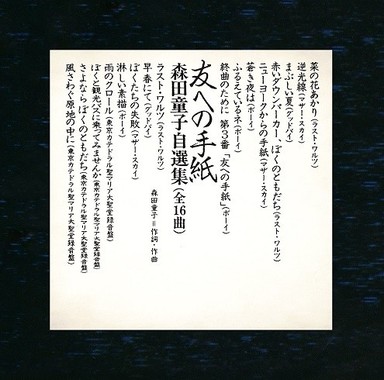 菜の花あかり(ラスト・ワルツ)
逆光線(マザー・スカイ)
まぶしい夏(グッドバイ)
赤いダウンパーカー、ぼくのともだち(ラスト・ワルツ)
ニューヨークからの手紙(マザー・スカイ)
蒼き夜は(ボーイ)
ふるえているネ(ボーイ)
終曲のために 第3番「友への手紙」(ボーイ)
友への手紙
森田童子自選集(全16曲)
森田童子=作詞・作曲
ラスト・ワルツ(ラスト・ワルツ)
早春にて(グッドバイ)
ぼくたちの失敗(マザー・スカイ)
淋しい素描(ボーイ)
雨のクロール(東京カテドラル聖マリア大聖堂録音盤)
ぼくと観光バスに乗ってみませんか(東京カテドラル聖マリア大聖堂録音盤)
さよなら ぼくの ともだち(東京カテドラル聖マリア大聖堂録音盤)
風さわぐ原地の中に(東京カテドラル聖マリア大聖堂録音盤)